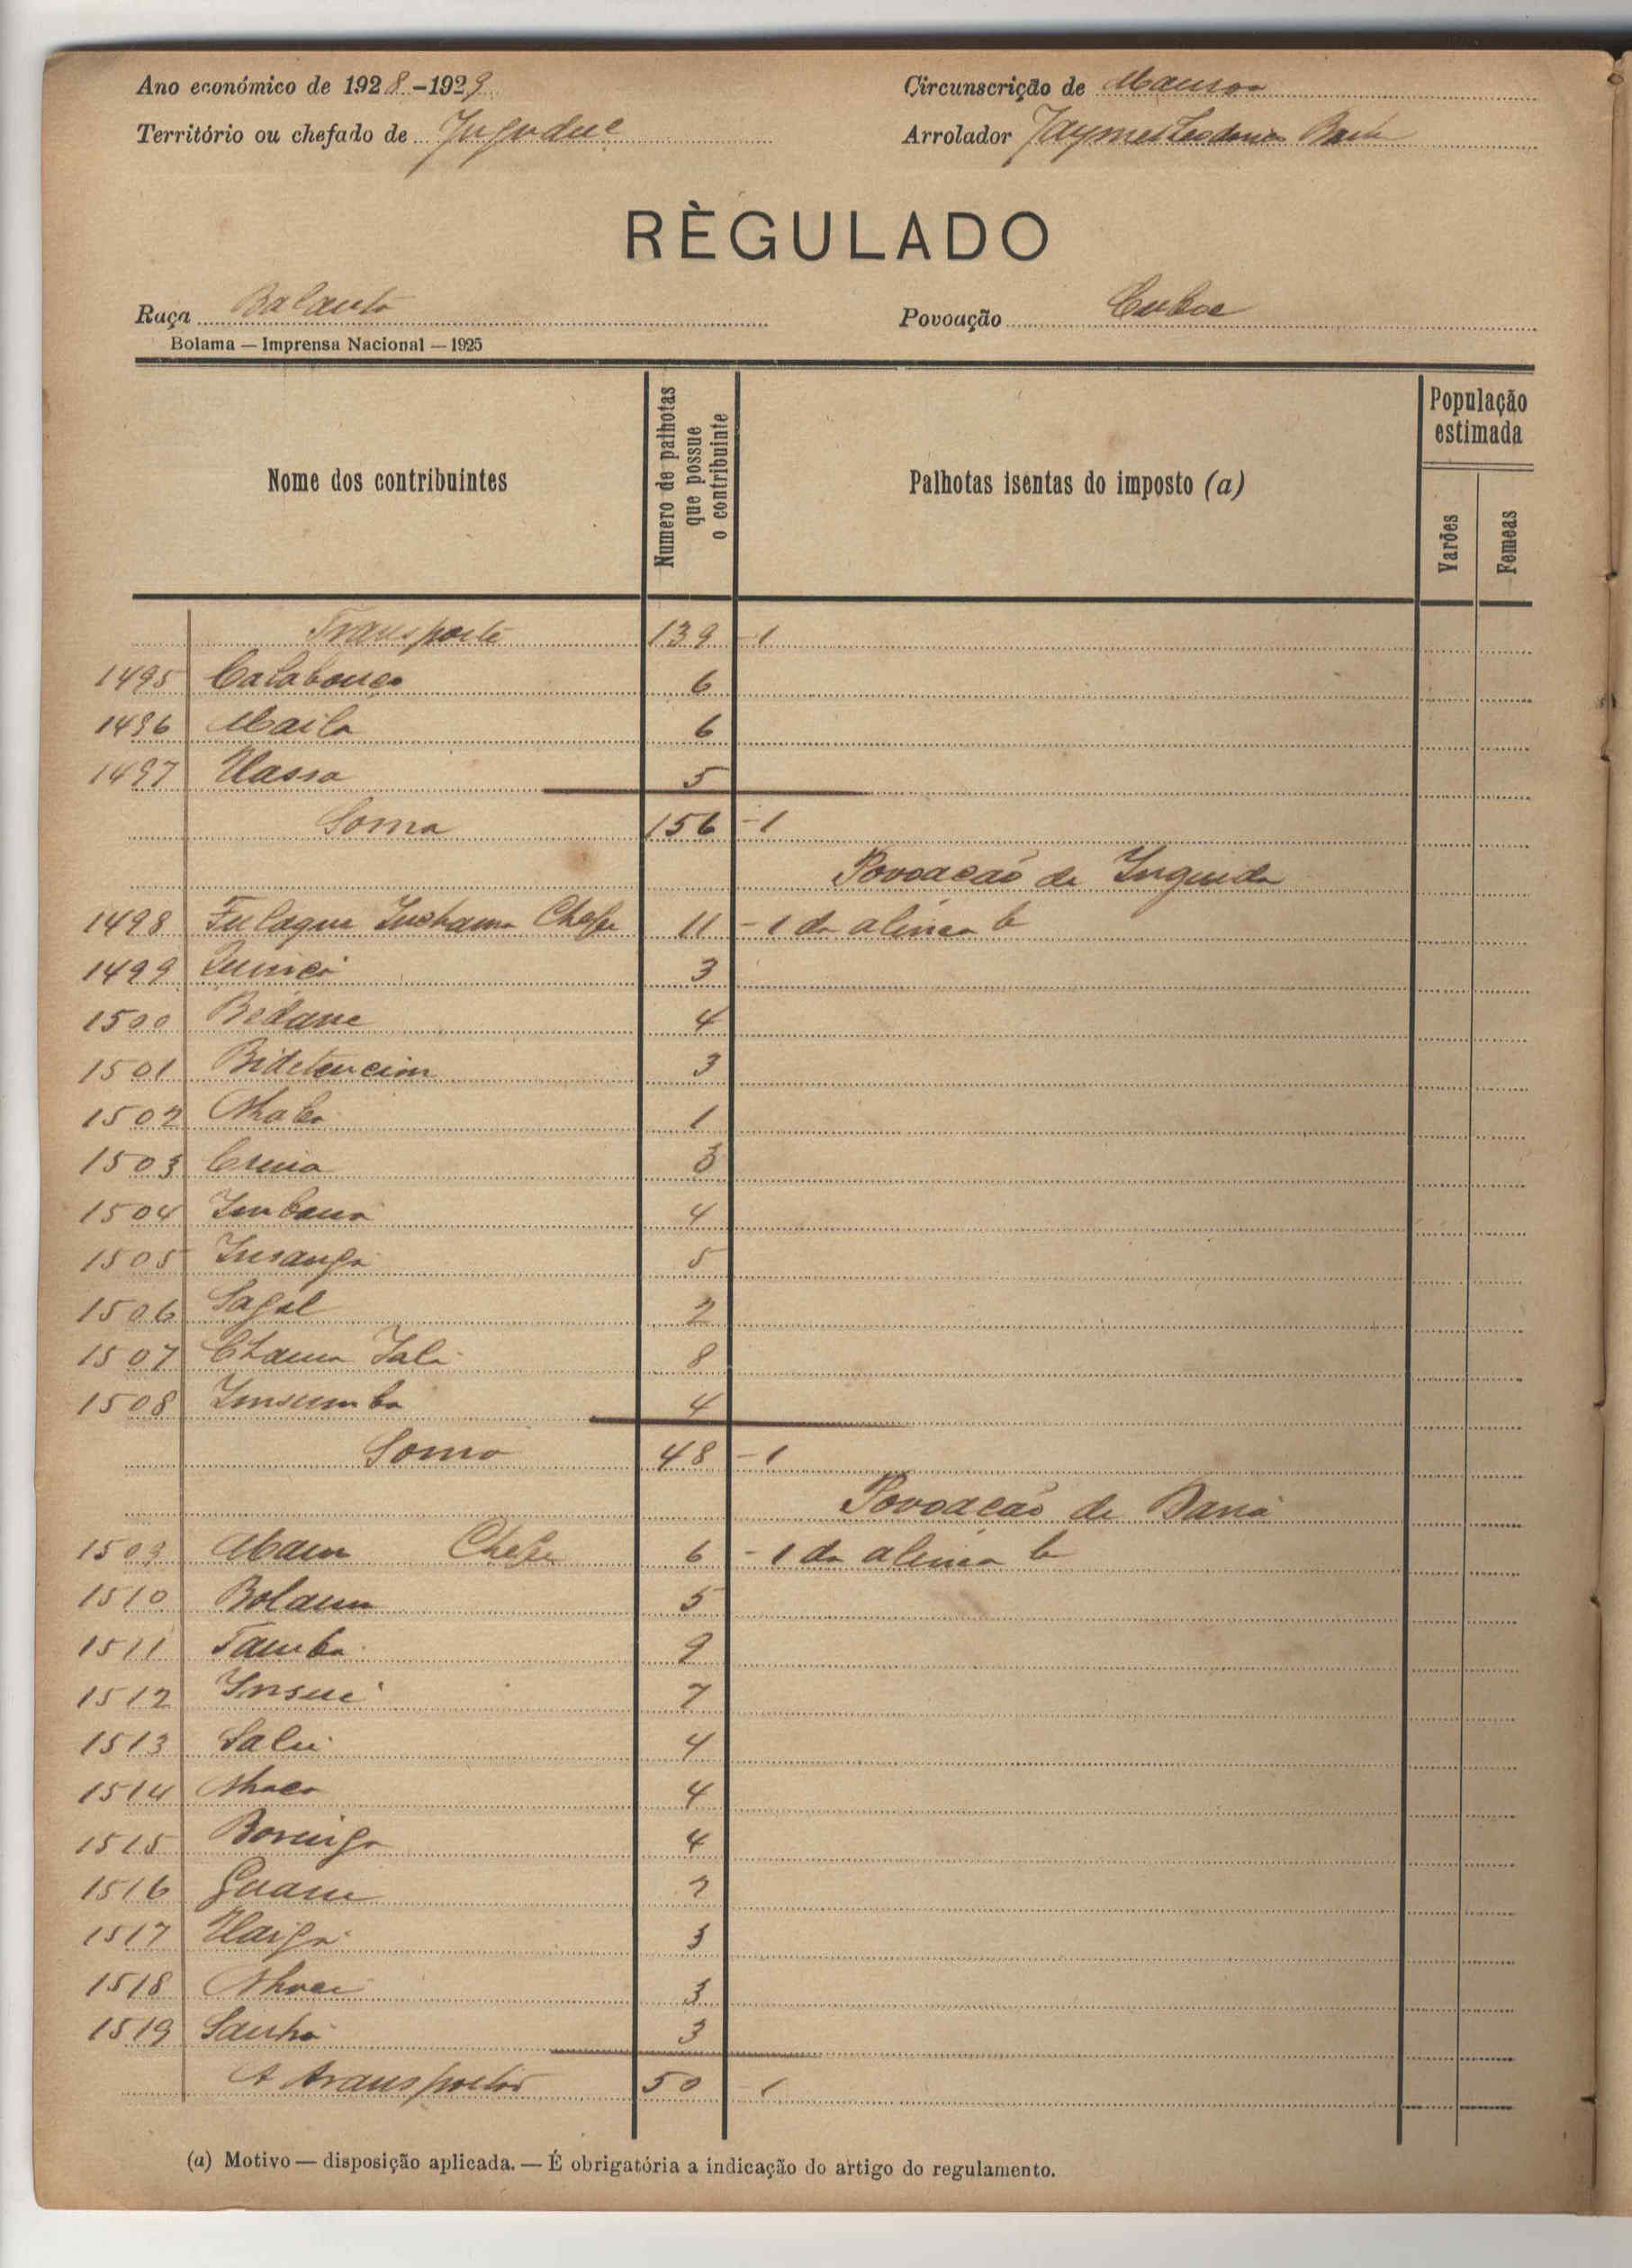 Ano económico de 1928-1929
Circunscrição de Mansoa
Território ou chefado de Jugudul
Arrolador Jayme
RÈGULADO
Raça Balanta
Povoação Cuboe
Bolama — Imprensa Nacional — 1925
Nome dos contribuintes
Numero de palhotas que possue o contribuinte
Palhotas isentas do imposto (a)
População estimada
Varões
Femeas
Transporte 139 -1
1495 Calabouço 6
1496 Maila 6
1497 Uassa 5
Soma 156 -1
Povoação de Inguida
1498 Fulaque Chefe 11 - 1 da alinea b
1499 3
1500 Bedane 4
1501 3
1502 Nhabo 1
1503 3
1504 4
1505 Insanga 5
1506 Sagal 2
1507 8
1508 Insumba 4
Soma 48 -1
Povoação de Daná
1509 Chefe 6 - 1 da alinea b
1510 5
1511 Tamba 2
1512 Insué 7
1513 Salú 4
1514 Nhaco 4
1515 4
1516 Guane 2
1517 Uaiga 3
1518 3
1519 Sanhá 3
A transportar 50 -1
(a) Motivo — disposição aplicada. — É obrigatória a indicação do artigo do regulamento.